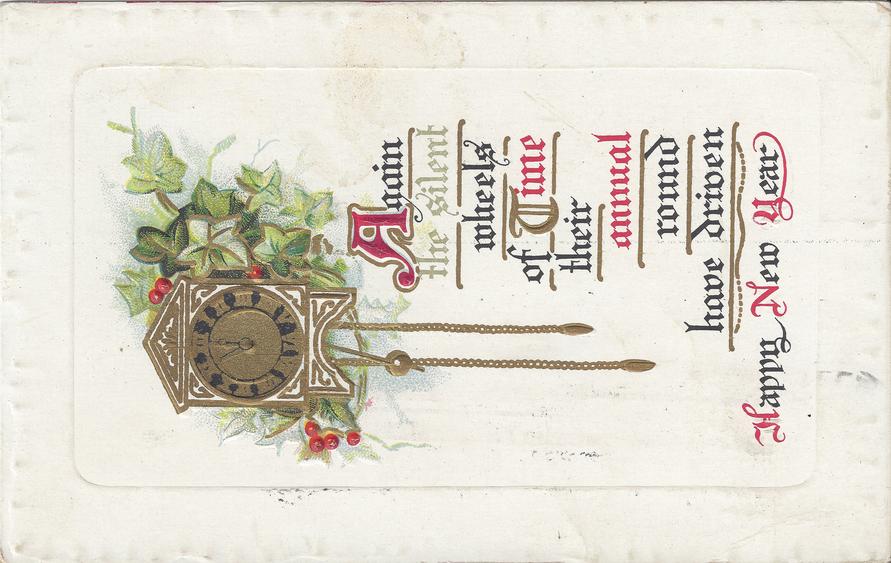 Again
the silent
wheels
of Time
their
annual
round
have driven
Happy New Year